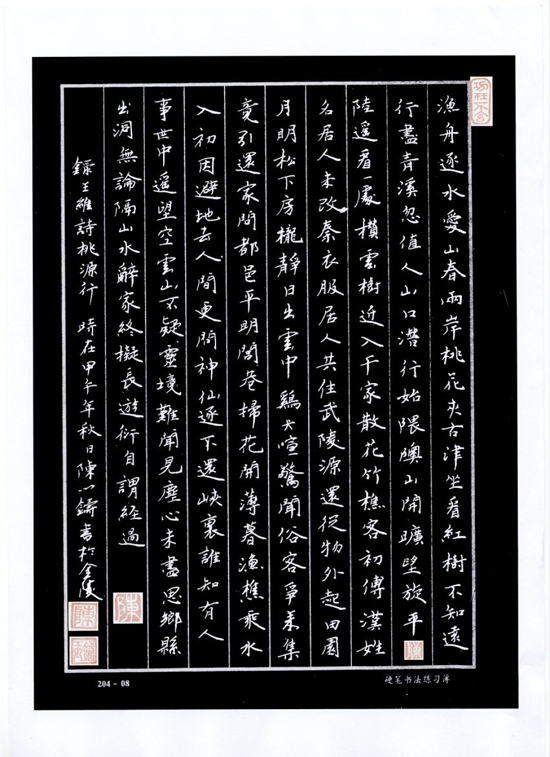 漁舟逐水愛山春兩岸桃花夾古津坐看紅樹不知遠
行盡青溪忽值人山口潛行始隈隩山開曠望旋平
陸遥看一處攢雲樹近入千家散花竹樵客初傳漢姓
名居人未改秦衣服居人共住武陵源還從物外起田園
月明松下房櫳靜日出雲中鷄犬喧驚聞俗客爭来集
竟引還家問都邑平明閭巷掃花開薄暮漁樵乘水
入初因避地去人間更問神仙逐不還峽裏誰知有人
事世中遥望空雲山不疑靈境難聞見塵心未盡思鄉縣
出洞無論隔山水辭家終擬長遊衍自謂經過
錄王維詩桃源行 時在甲午年秋日陳一鑄書於金陵
204 - 08
硬笔书法练习簿